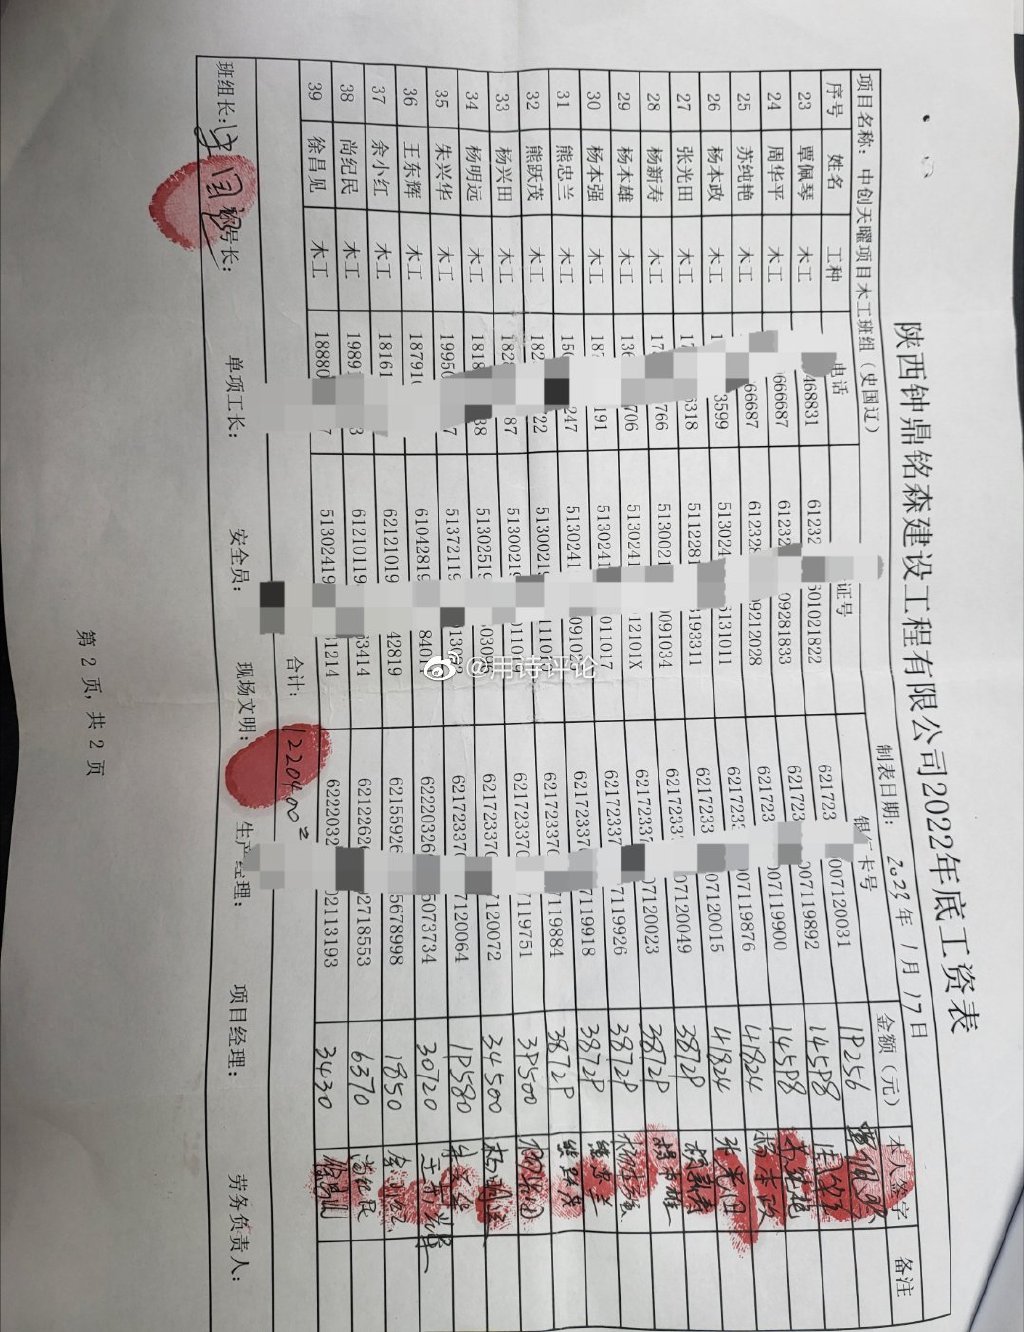 陕西钟鼎铭森建设工程有限公司2022年底工资表
项目名称：中创天曜项目木工班组（史国辽） 制表日期：2023年1月17日
序号 姓名 工种 电话 证号 银行卡号 金额（元） 本人签字 备注
23 覃佩琴 木工 468831 61232 601021822 621723 007120031 19256 覃佩琴
24 周华平 木工 666687 61232 09281833 621723 007119892 14598
25 苏纯艳 木工 66687 612328 09212028 621723 007119900 14598 苏纯艳
26 杨本政 木工 1 3599 513024 6131011 621723 007119876 41824 杨本政
27 张光田 木工 1 6318 511228 193311 621723 07120015 41824 张光田
28 杨新寿 木工 17 766 513002 091034 621723 07120049 38729 杨新寿
29 杨本雄 木工 136 706 5130241 12101X 6217233 07120023 38729 杨本雄
30 杨本强 木工 187 191 5130241 011017 62172337 7119926 38729 杨本强
31 熊忠兰 木工 150 247 5130241 091021 62172337 7119918 38729 熊忠兰
32 熊跃茂 木工 182 22 51300219 62172337 7119884 38729 熊跃茂
33 杨兴田 木工 1828 87 51300219 621723370 7119751 39500 杨兴田
34 杨明远 木工 1818 38 51302519 621723370 7120072 34500 杨明远
35 朱兴华 木工 19950 7 51372119 621723370 7120064 19580 朱兴华
36 王东辉 木工 18791 61042819 8401 62220326 5073734 30720 王东辉
37 余小红 木工 18161 62121019 42819 62155926 5678998 1850 余小红
38 尚纪民 木工 1989 3 61210119 3414 62122626 2718553 6370 尚纪民
39 徐昌见 木工 18880 7 51302419 1214 6222032 02113193 3430 徐昌见
合计：
班组长： 工长： 单项工长： 安全员： 现场文明： 生产经理： 项目经理： 劳务负责人：
第 2 页，共 2 页
@用诗评论